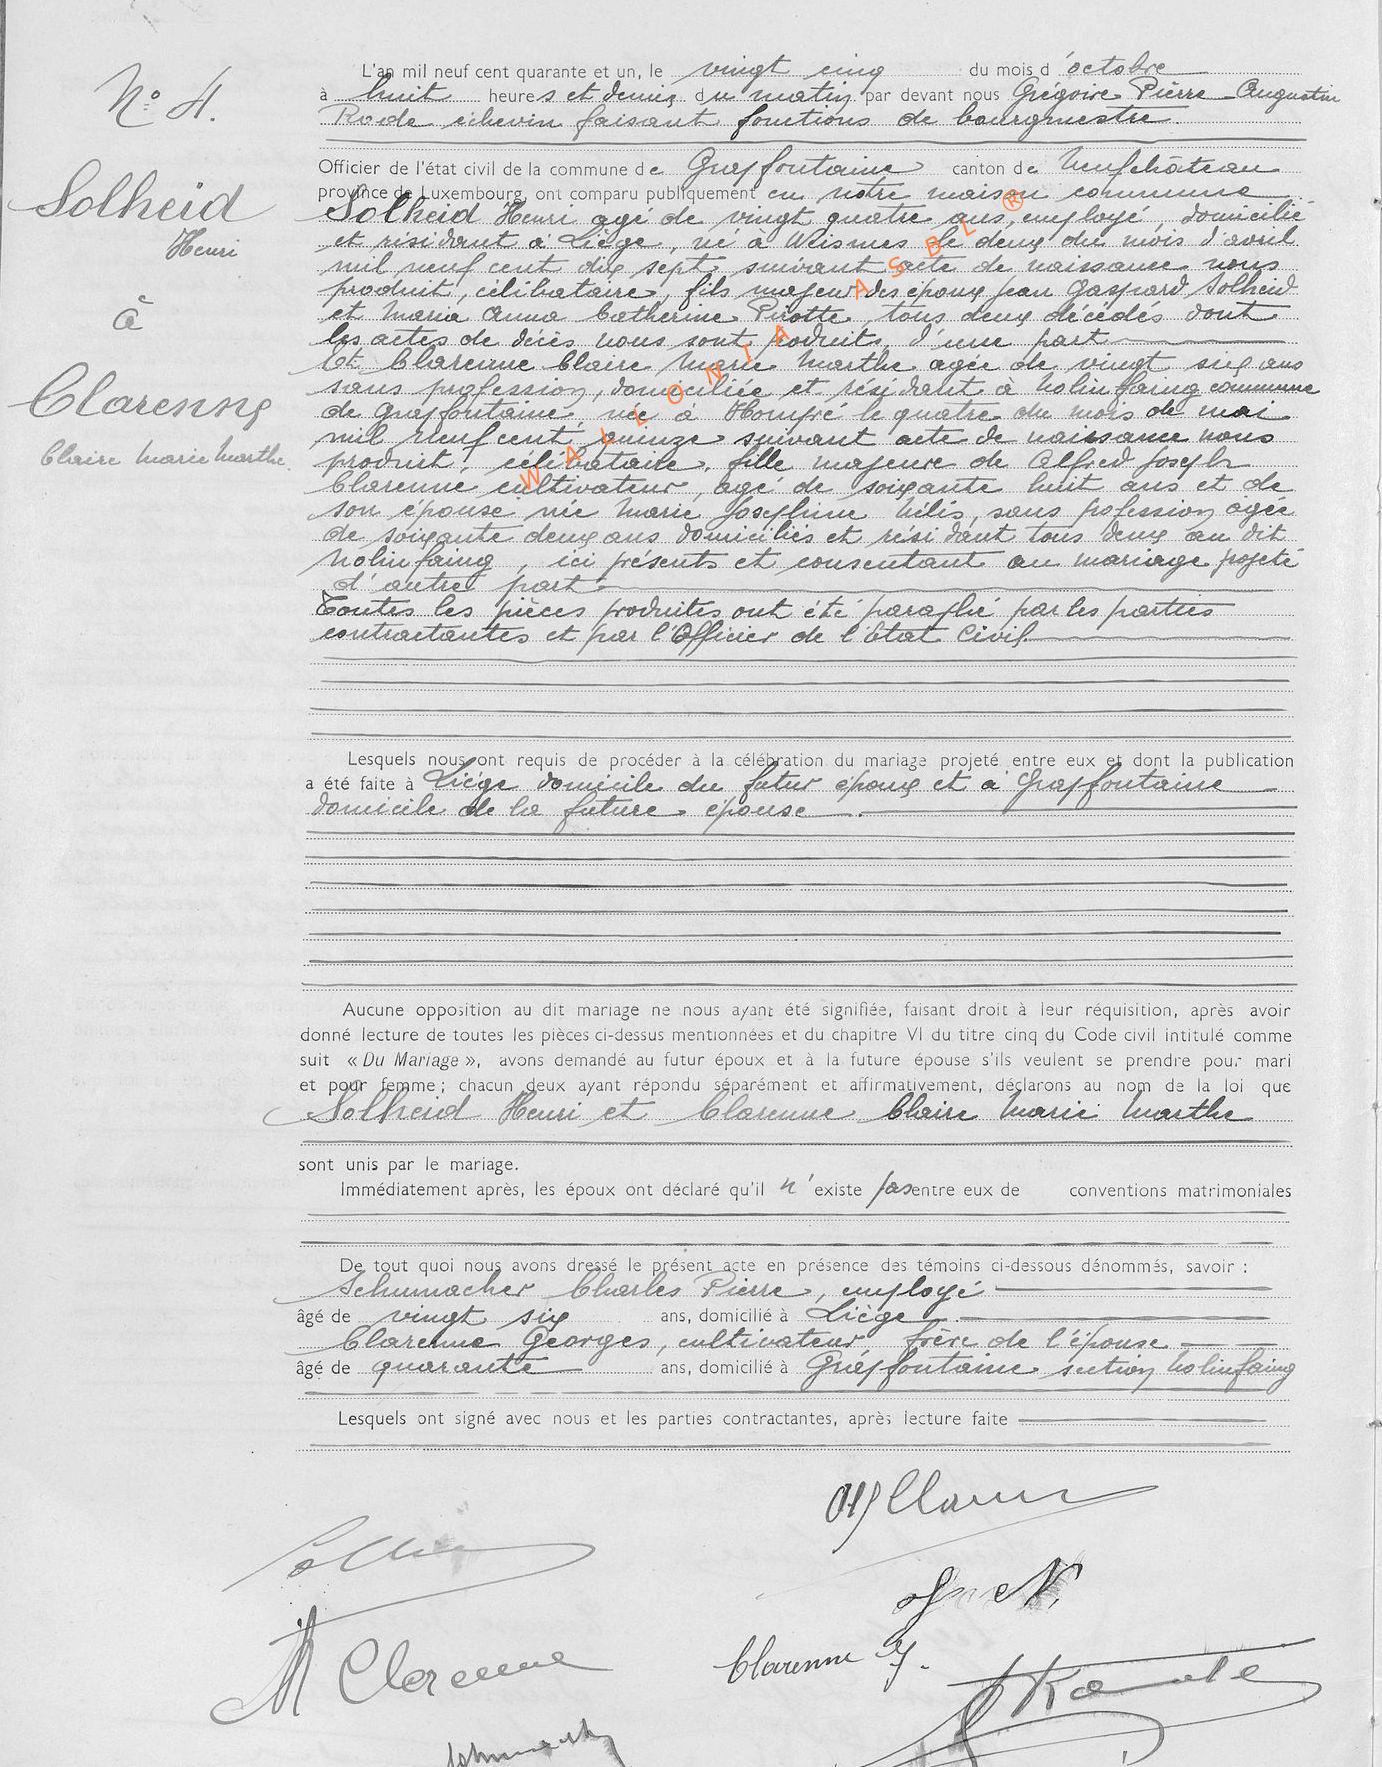 N° 4.
Solheid
Henri
à
Clarenne
Claire Marie Marthe
L'an mil neuf cent quarante et un, le vingt cinq du mois d'octobre
à huit heures et demie du matin par devant nous Grégoire Pierre Augustin
échevin faisant fonctions de bourgmestre.
Officier de l'état civil de la commune de Grapfontaine canton de Neufchâteau
province de Luxembourg, ont comparu publiquement en notre maison commune
Solheid Henri agé de vingt quatre ans, employé, domicilié
et résidant à Liège, né à Weismes le deux du mois d'avril
mil neuf cent dix sept suivant acte de naissance nous
produit, célibataire, fils majeur des époux Jean Gaspard Solheid
et Maria Anna Catherine Pirotte, tous deux décédés dont
les actes de décès nous sont produits, d'une part
Et Clarenne Claire Marie Marthe agée de vingt six ans
sans profession, domiciliée et résidant à Nolinfaing commune
de Grapfontaine, née à Hompré le quatre du mois de mai
mil neuf cent quinze suivant acte de naissance nous
produit, célibataire, fille majeure de Alfred Joseph
Clarenne cultivateur, agé de soixante huit ans et de
son épouse née Marie Joséphine Nélis, sans pofession agée
de soixante deux ans domiciliés et résidant tous deux au dit
Nolinfaing, ici présents et consentant au mariage projeté
d'autre part
Toutes les pièces produites ont été paraphé par les parties
contractantes et par l'Officier de l'Etat Civil
Lesquels nous ont requis de procéder à la célébration du mariage projeté entre eux et dont la publication
a été faite à Liège domicile du futur époux et à Grapfontaine
domicile de la future épouse.
Aucune opposition au dit mariage ne nous ayant été signifiée, faisant droit à leur réquisition, après avoir
donné lecture de toutes les pièces ci-dessus mentionnées et du chapitre VI du titre cinq du Code civil intitulé comme
suit « Du Mariage », avons demandé au futur époux et à la future épouse s'ils veulent se prendre pour mari
et pour femme ; chacun deux ayant répondu séparément et affirmativement, déclarons au nom de la loi que
Solheid Henri et Clarenne Claire Marie Marthe
sont unis par le mariage.
Immédiatement après, les époux ont déclaré qu'il n'existe pas entre eux de conventions matrimoniales
De tout quoi nous avons dressé le présent acte en présence des témoins ci-dessous dénommés, savoir :
Schumacher Charles Pierre, employé
âgé de vingt six ans, domicilié à Liège
Clarenne Georges, cultivateur, frère de l'épouse
âgé de quarante ans, domicilié à Grapfontaine section Nolinfaing
Lesquels ont signé avec nous et les parties contractantes, après lecture faite
M Clarenne
Clarenne G.
WALLONIA ASBL ®